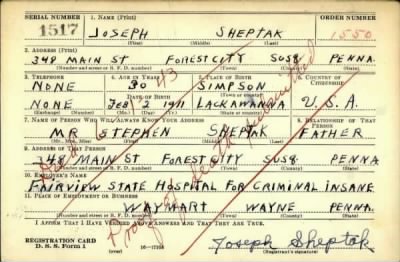 SERIAL NUMBER 1. NAME (Print) ORDER NUMBER
1517 JOSEPH SHEPTAK 1550
(First) (Middle) (Last)
2. ADDRESS (Print)
348 MAIN ST FOREST CITY SUSQ PENNA.
(Number and street or R. F. D. number) (Town) (County) (State)
3. TELEPHONE 4. AGE IN YEARS 5. PLACE OF BIRTH 6. COUNTRY OF CITIZENSHIP
NONE 30 SIMPSON
DATE OF BIRTH (Town or county)
NONE FEB 2 1911 LACKAWANNA U.S.A.
(Exchange) (Number) (Mo.) (Day) (Yr.) (State or country)
7. NAME OF PERSON WHO WILL ALWAYS KNOW YOUR ADDRESS 8. RELATIONSHIP OF THAT PERSON
MR STEPHEN SHEPTAK FATHER
(Mr., Mrs., Miss) (First) (Middle) (Last)
9. ADDRESS OF THAT PERSON
348 MAIN ST FOREST CITY SUSQ. PENNA
(Number and street or R. F. D. number) (Town) (County) (State)
10. EMPLOYER'S NAME
FAIRVIEW STATE HOSPITAL FOR CRIMINAL INSANE
11. PLACE OF EMPLOYMENT OR BUSINESS
WAYMART WAYNE PENNA.
(Number and street or R. F. D. number) (Town) (County) (State)
I AFFIRM THAT I HAVE VERIFIED ABOVE ANSWERS AND THAT THEY ARE TRUE.
REGISTRATION CARD
D. S. S. Form 1 16-17105 Joseph Sheptak
(Registrant's signature)
Proof of death submitted